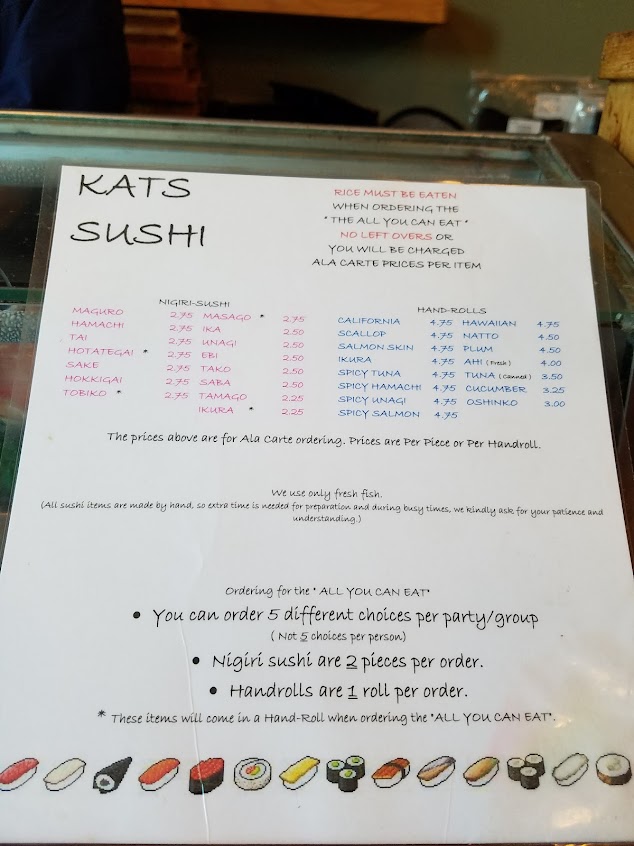 KATS
SUSHI
RICE MUST BE EATEN
WHEN ORDERING THE
"THE ALL YOU CAN EAT"
NO LEFT OVERS OR
YOU WILL BE CHARGED
ALA CARTE PRICES PER ITEM
NIGIRI-SUSHI
MAGURO 2.75 MASAGO * 2.75
HAMACHI 2.75 IKA 2.50
TAI 2.75 UNAGI 2.50
HOTATEGAI * 2.75 EBI 2.50
SAKE 2.75 TAKO 2.50
HOKKIGAI 2.75 SABA 2.50
TOBIKO * 2.75 TAMAGO 2.25
IKURA * 2.25
HAND-ROLLS
CALIFORNIA 4.75 HAWAIIAN 4.75
SCALLOP 4.75 NATTO 4.50
SALMON SKIN 4.75 PLUM 4.50
IKURA 4.75 AHI (Fresh) 4.00
SPICY TUNA 4.75 TUNA (Canned) 3.50
SPICY HAMACHI 4.75 CUCUMBER 3.25
SPICY UNAGI 4.75 OSHINKO 3.00
SPICY SALMON 4.75
The prices above are for Ala Carte ordering. Prices are Per Piece or Per Handroll.
We use only fresh fish.
(All sushi items are made by hand, so extra time is needed for preparation and during busy times, we kindly ask for your patience and
understanding.)
Ordering for the "ALL YOU CAN EAT"
• You can order 5 different choices per party/group
(Not 5 choices per person)
• Nigiri sushi are 2 pieces per order.
• Handrolls are 1 roll per order.
* These items will come in a Hand-Roll when ordering the "ALL YOU CAN EAT".